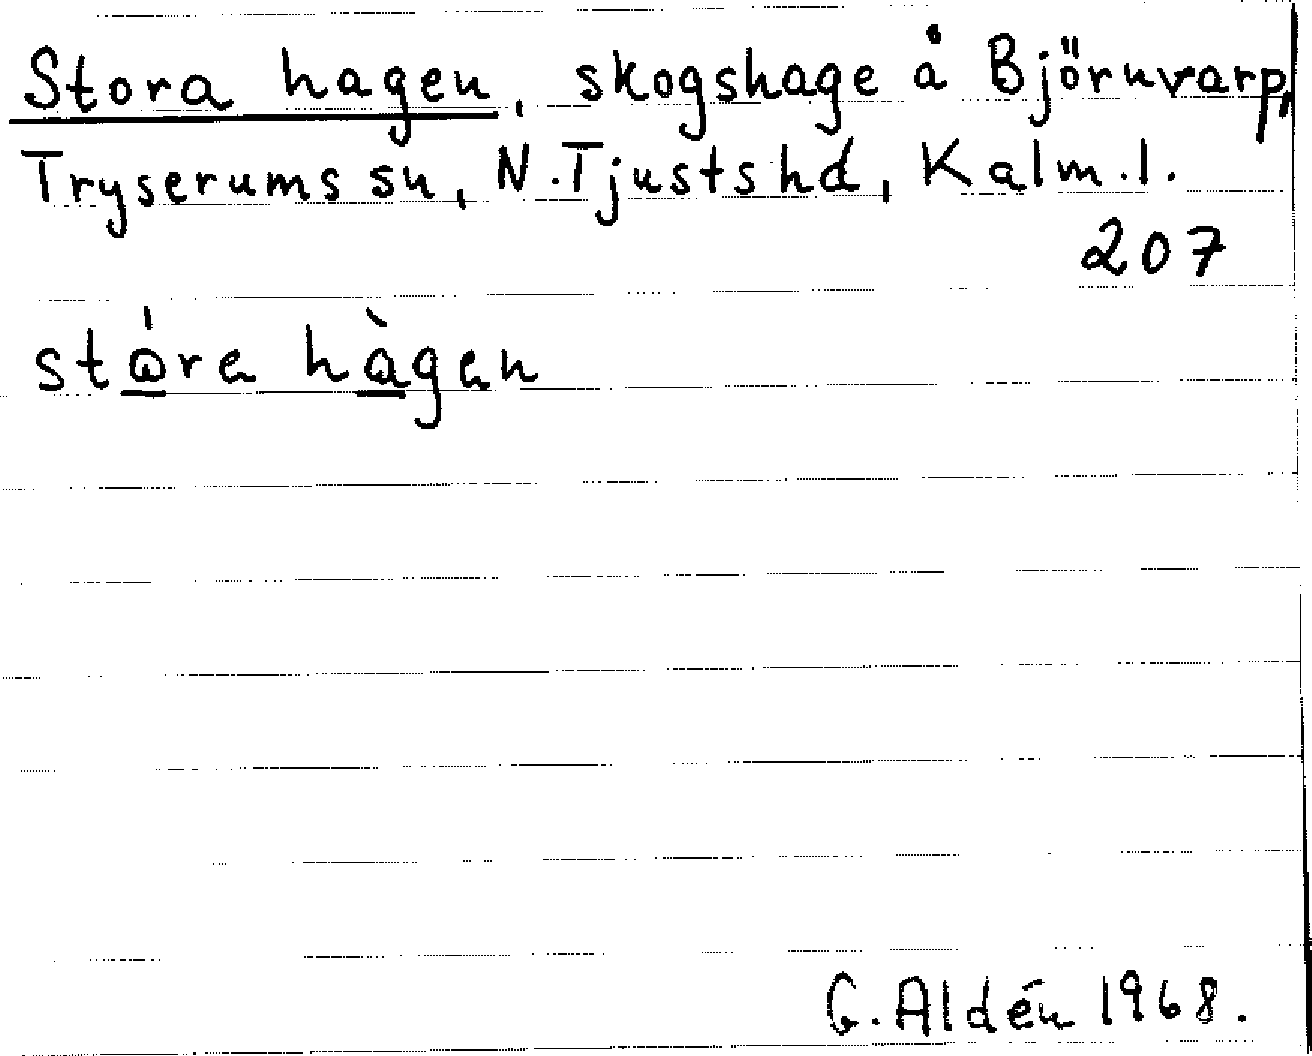 Stora hagen, skogshage å Björnvarp,
Tryserums sn, N. Tjusts hd, Kalm. l.
207
stó̲re hà̲gen
G. Aldén 1968.